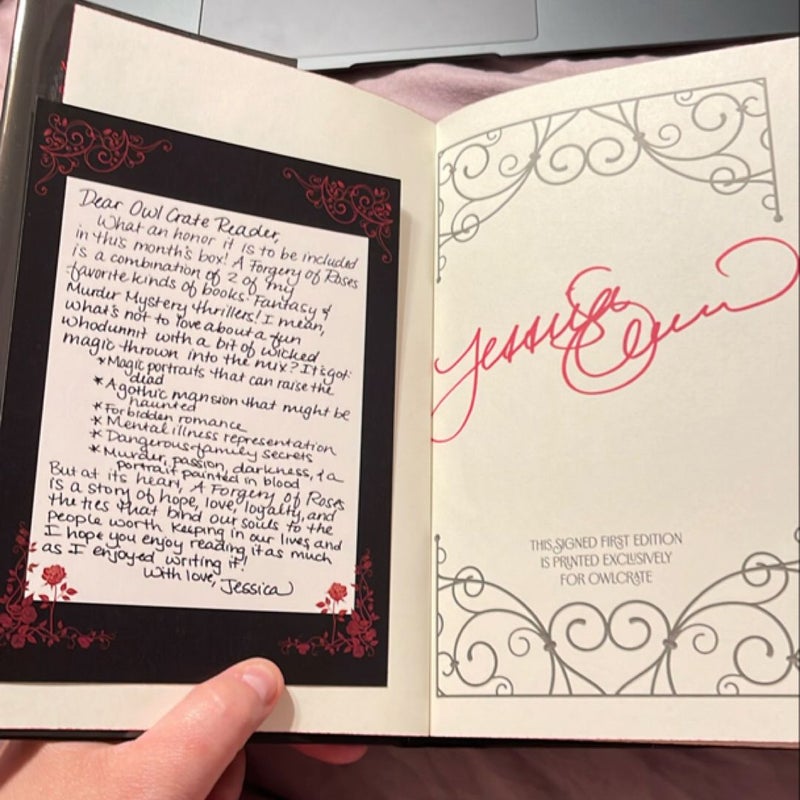 Dear Owl Crate Reader,
What an honor it is to be included
in this month's box! A Forgery of Roses
is a combination of 2 of my
favorite kinds of books: Fantasy &
Murder Mystery thrillers! I mean,
what's not to love about a fun
whodunnit with a bit of wicked
magic thrown into the mix? It's got:
*Magic portraits that can raise the
dead
*A gothic mansion that might be
haunted
*Forbidden romance
*Mental illness representation
*Dangerous family secrets
*Murder, passion, darkness, & a
portrait painted in blood
But at its heart, A Forgery of Roses
is a story of hope, love, loyalty, and
the ties that bind our souls to the
people worth keeping in our lives, and
I hope you enjoy reading it as much
as I enjoyed writing it!
With love, Jessica
Jessica
THIS SIGNED FIRST EDITION
IS PRINTED EXCLUSIVELY
FOR OWLCRATE